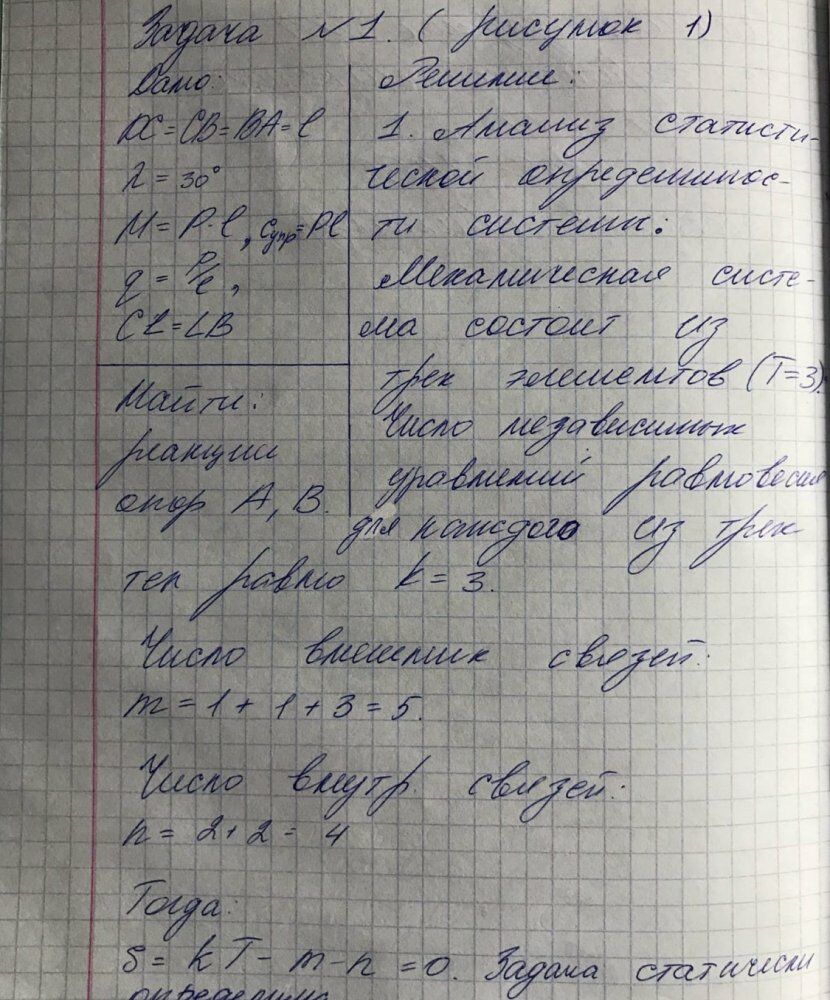 Задача №1. (рисунок 1)
Дано:
DC=CB=BA=l
α=30°
M=P·l, Cупр=Pl
q=P/l,
CL=LB
Найти:
реакции
опор A, B.
Решение:
1. Анализ статисти-
ческой определеннос-
ти системы:
Механическая систе-
ма состоит из
трех элементов (T=3).
Число независимых
уравнений равновесия
для каждого из трех
тел равно k=3.
Число внешних связей:
m=1+1+3=5.
Число внутр связей:
n=2+2=4
Тогда:
S=kT-m-n=0. Задача статически
определима